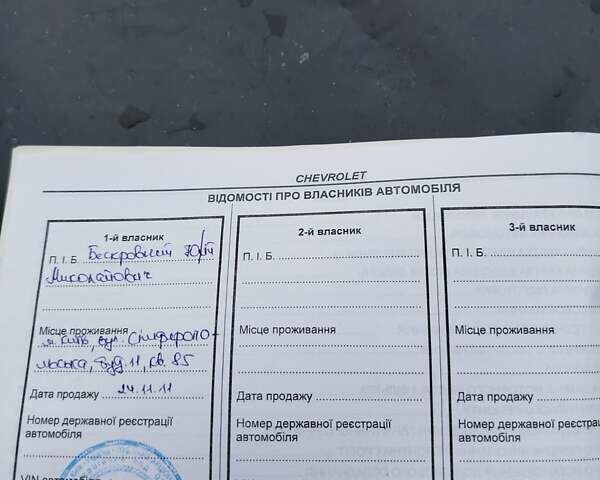 CHEVROLET
ВІДОМОСТІ ПРО ВЛАСНИКІВ АВТОМОБІЛЯ
1-й власник
П. І. Б. Бескровний Юрій
Миколайович
Місце проживання
м. Київ, вул. Сімферопо-
льська, буд. 11, кв. 85
Дата продажу 24.11.11
Номер державної реєстрації
автомобіля
VIN автомобіля
2-й власник
П. І. Б.
Місце проживання
Дата продажу
Номер державної реєстрації
автомобіля
3-й власник
П. І. Б.
Місце проживання
Дата продажу
Номер державної
автомобіля